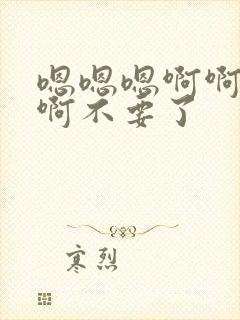 嗯嗯嗯啊啊
啊不要了
寒烈